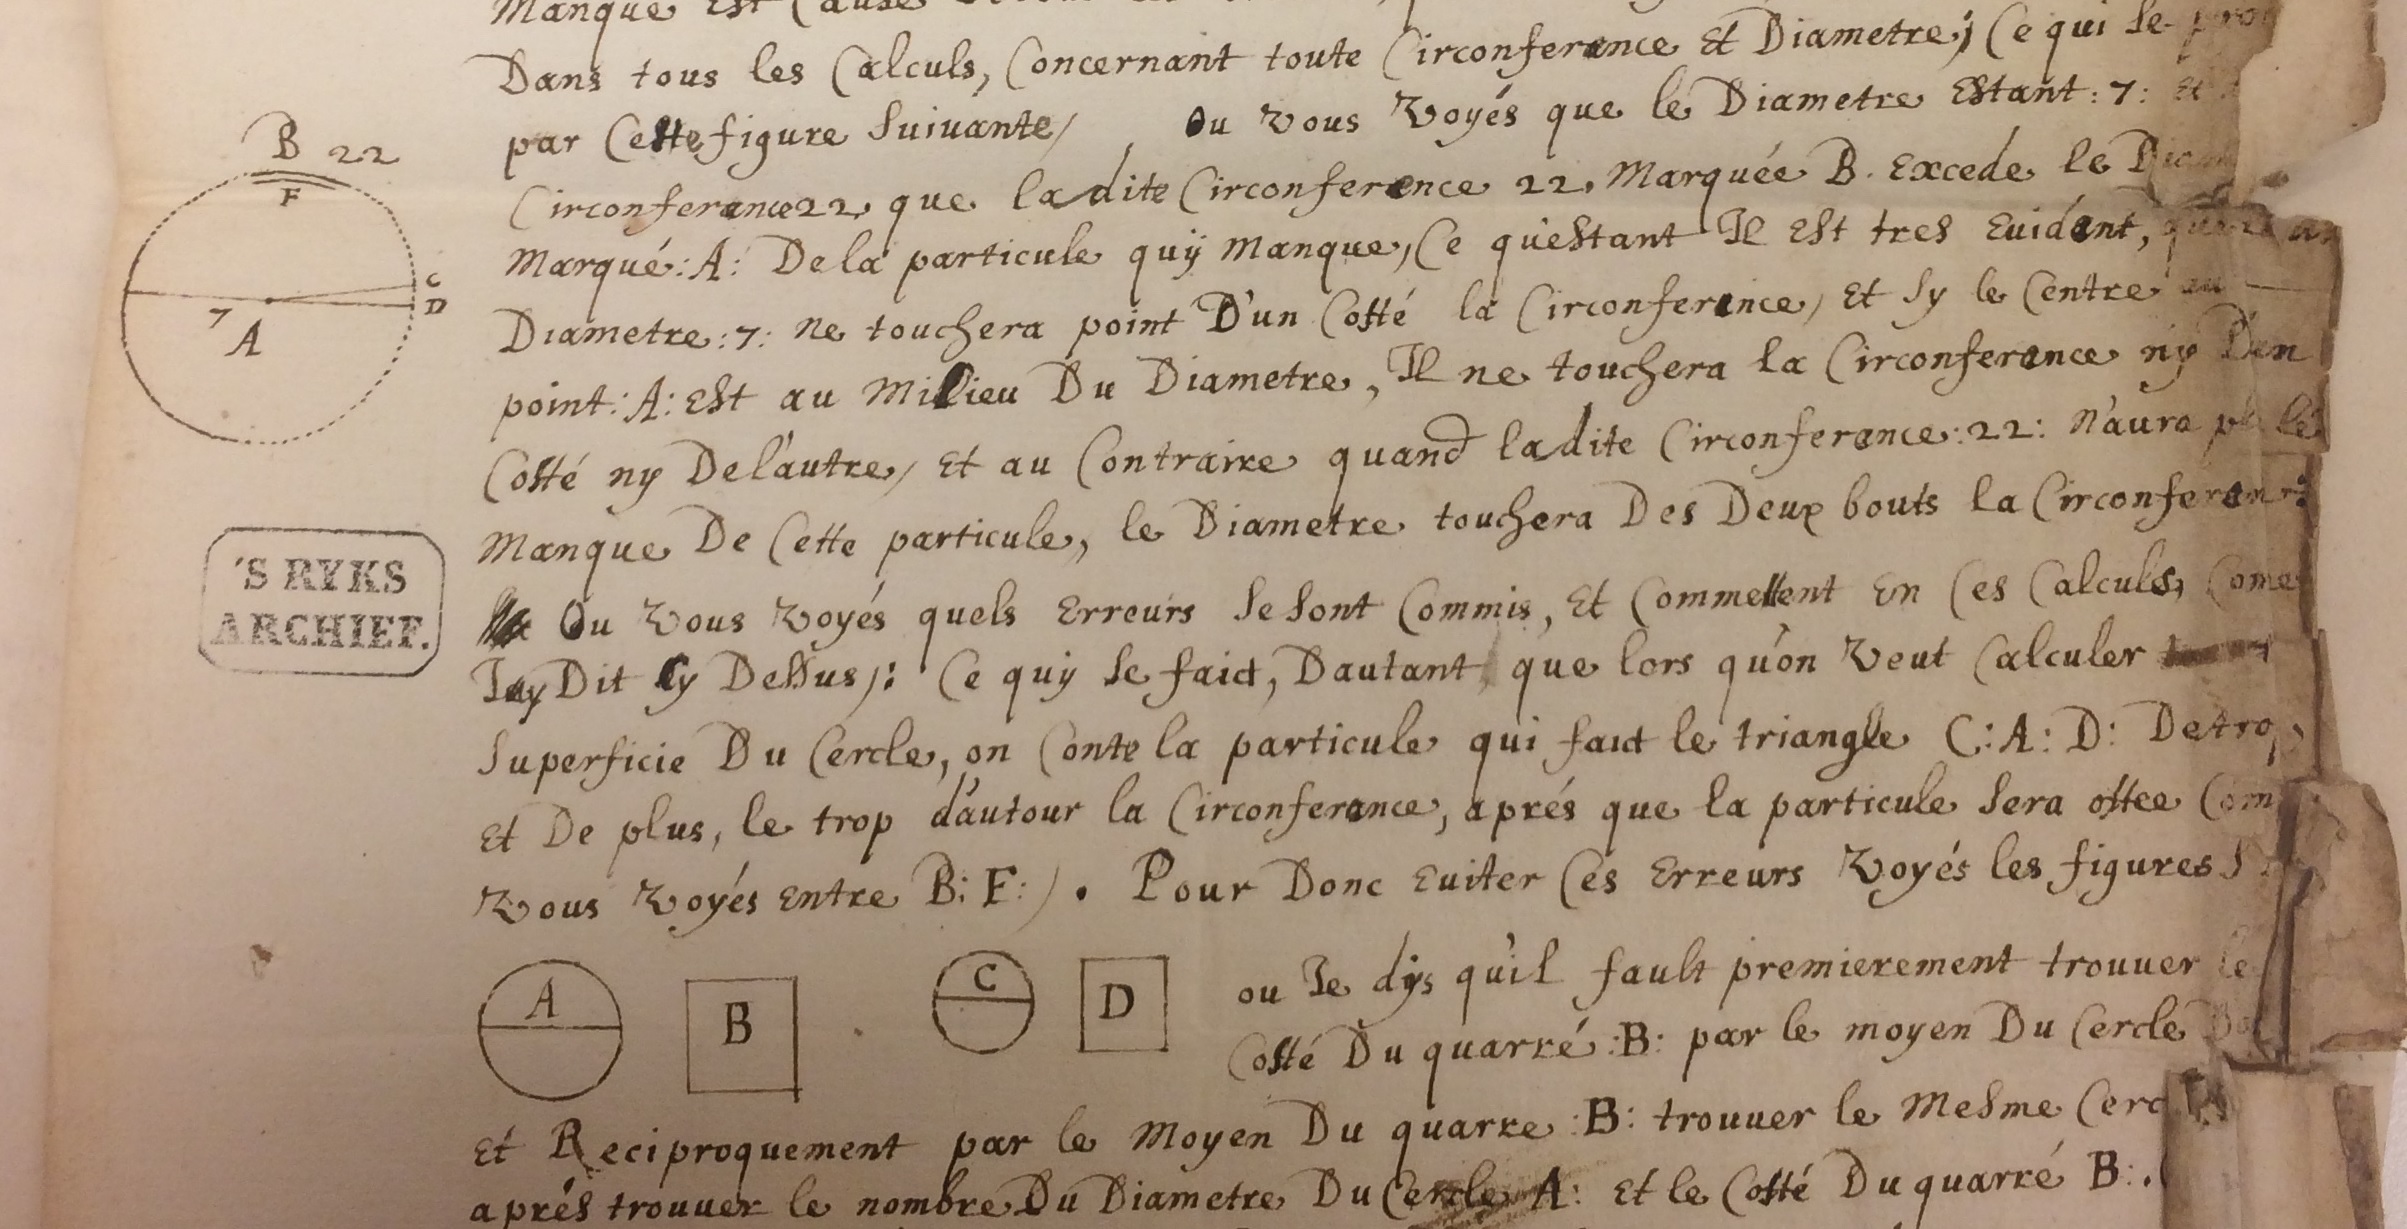 Manque Est Cause
Dans tous les Calculs, Concernant toute Circonferance Et Diametre; Ce qui se
par Cette figure Suivante/ Ou vous Voyés que le Diametre Estant: 7: Et
Circonferance 22, que la dite Circonference 22, Marquée B. Excede le
Marqué: A: De la particule quÿ Manque, Ce qu'estant Il Est tres Euidant,
Diametre: 7: Ne touchera point D'un Costé la Circonferance, Et Sy le Centre au
point: A: Est au Milieu Du Diametre, Il ne touchera la Circonferance ny D'en
Costé ny De l'autre, Et au Contraire quand la dite Circonferance: 22: N'aura
Manque De Cette particule, le Diametre touchera Des Deux bouts la
Ou vous voyés quels Erreurs Se Sont Commis, Et Commettent En Ces Calculs, Come
J'ay Dit Cy Dessus/: Ce quÿ Se faict, D'autant que lors qu'on Veut Calculer
Superficie Du Cercle, on Conte la particule qui faict le triangle C: A: D: De trop,
Et De plus, le trop d'autour la Circonferance, aprés que la particule Sera ostee
Vous Voyés Entre B: F:). Pour Donc Euiter Ces Erreurs Voyés les figures
ou Je dÿs qu'il fault premierement trouuer le
Costé Du quarré: B: par le moyen Du Cercle
Et Reciproquement par le Moyen Du quarre: B: trouuer le Mesme
aprés trouuer le nombre Du Diametre Du Cercle A: Et le Costé Du quarré B:.
B 22
F
C
D
7
A
'S RYKS
ARCHIEF.
A
B
C
D